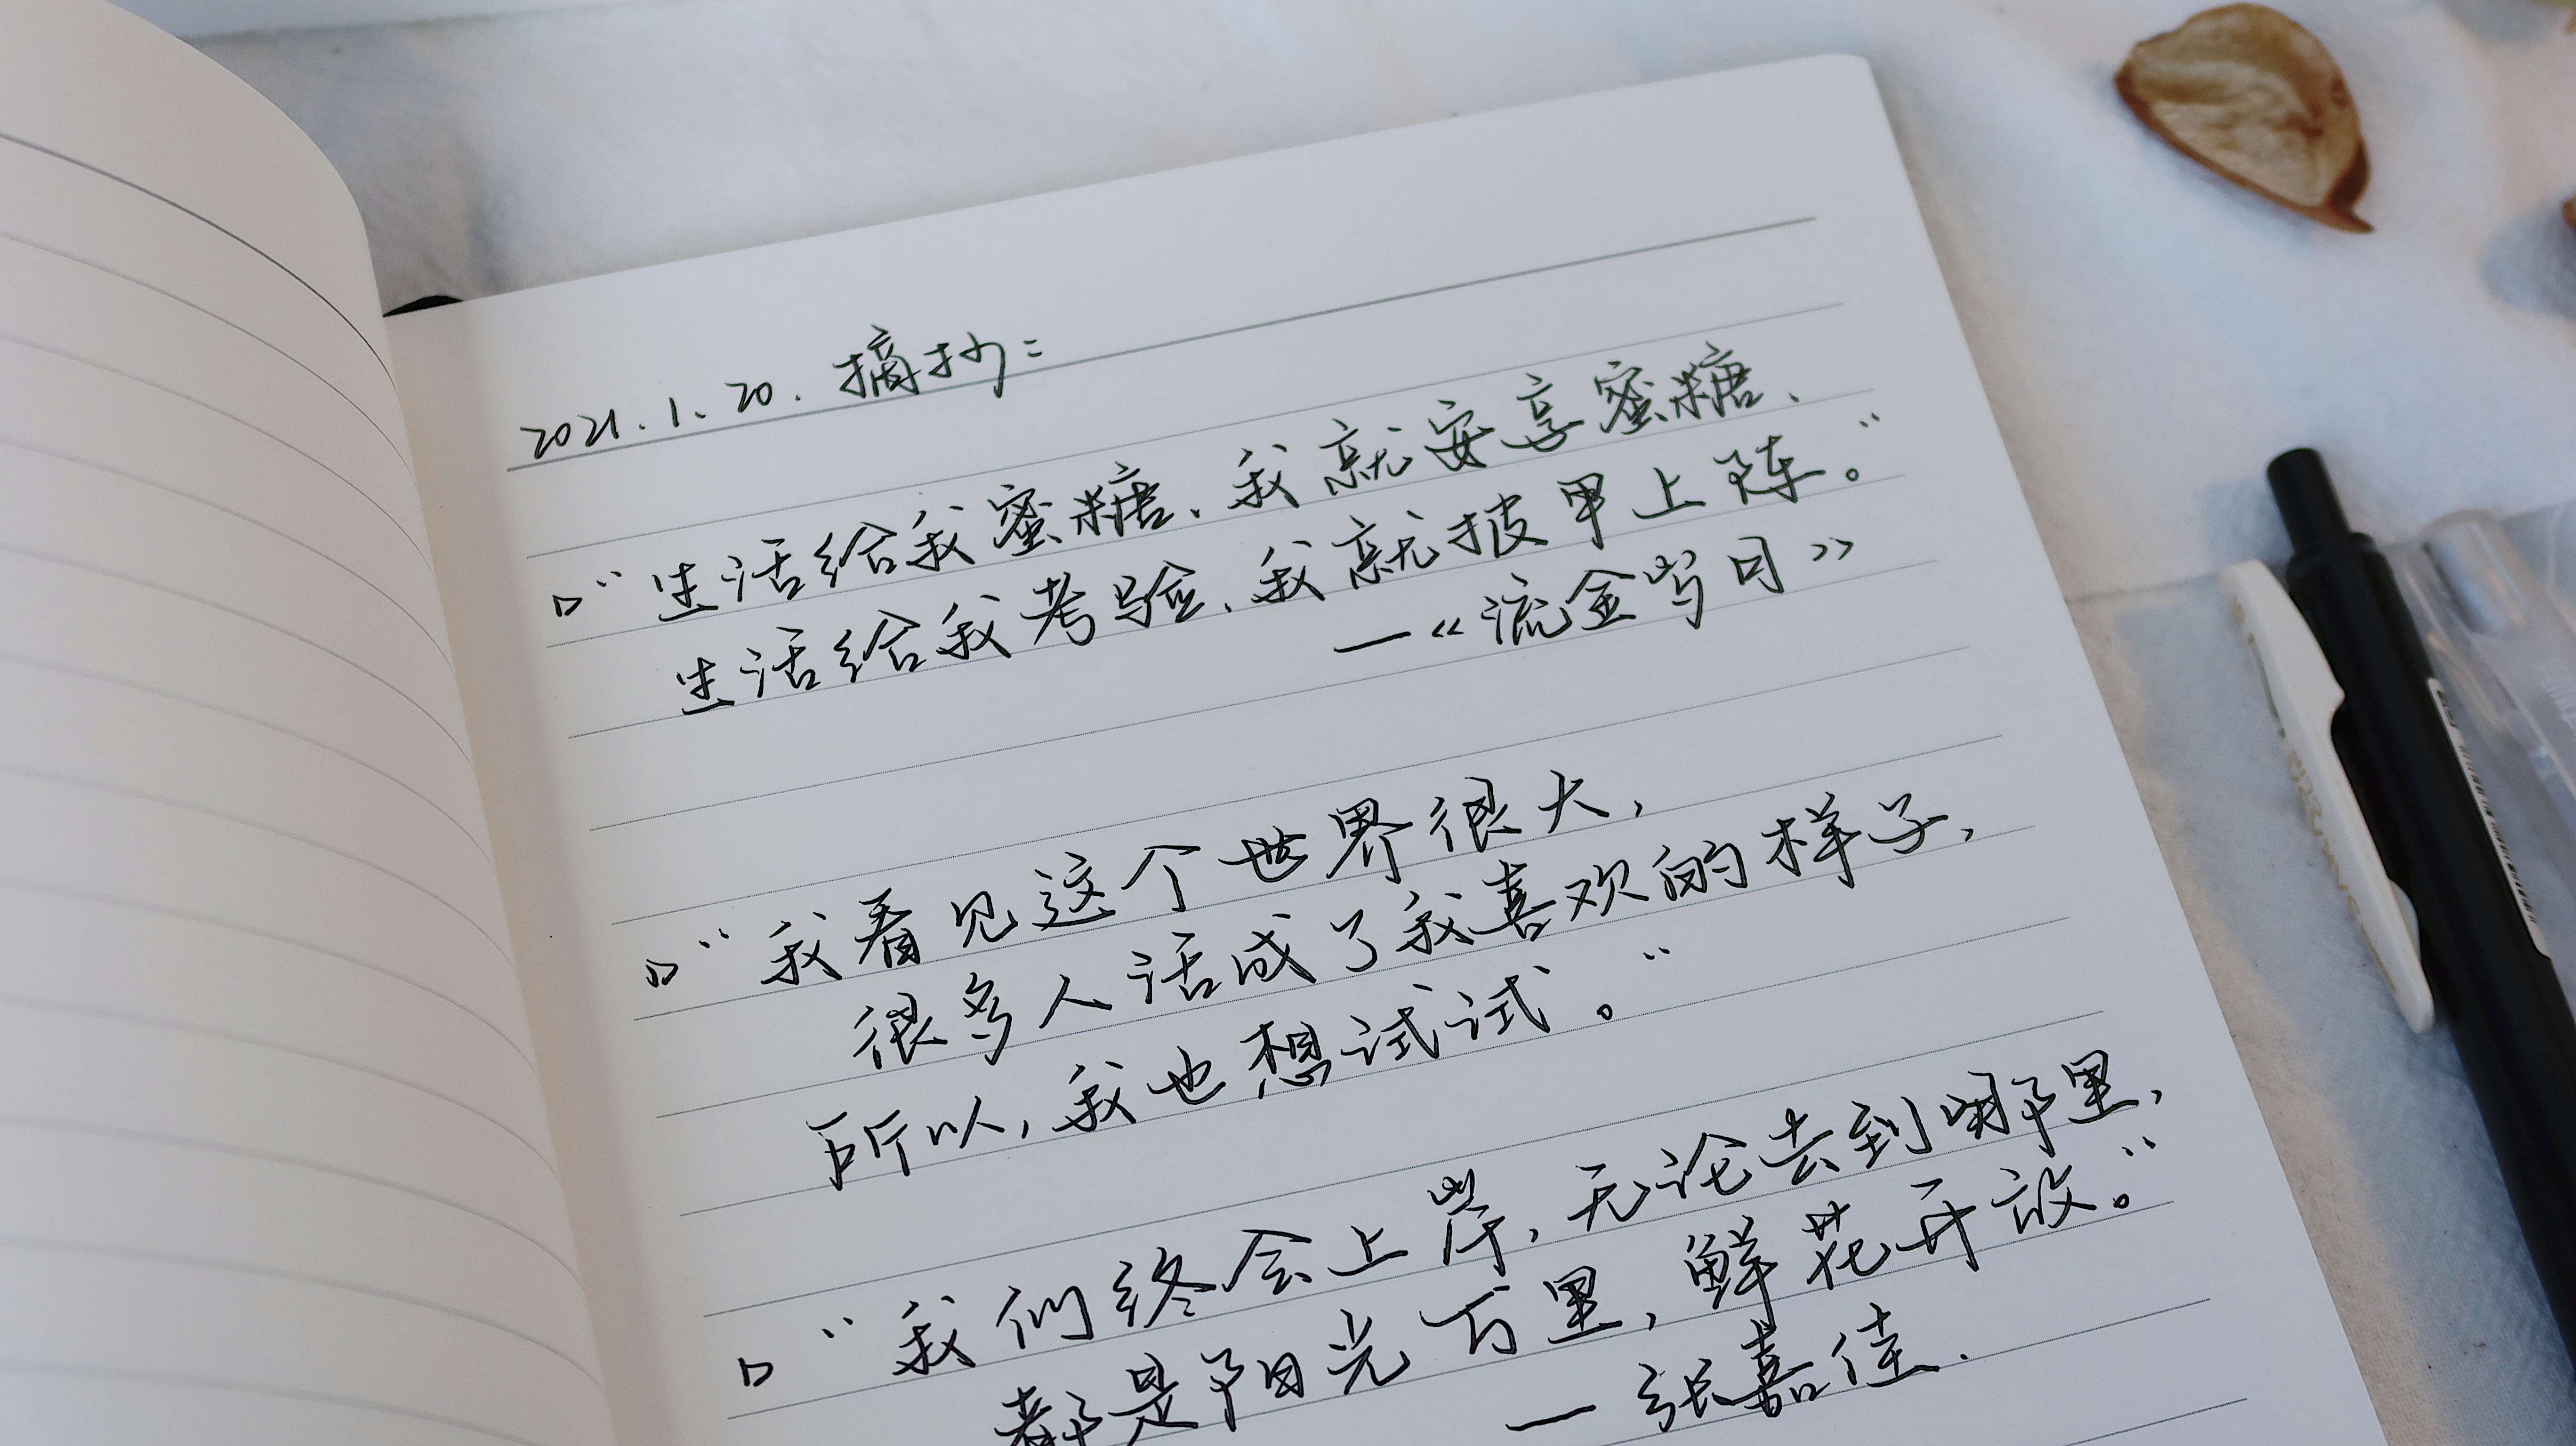 2021.1.20. 摘抄：
“生活给我蜜糖，我就安享蜜糖、
生活给我考验，我就披甲上阵。”
—《流金岁月》
“我看见这个世界很大，
很多人活成了我喜欢的样子，
所以，我也想试试。”
“我们终会上岸，无论去到哪里，
都是阳光万里，鲜花开放。”
— 张嘉佳.